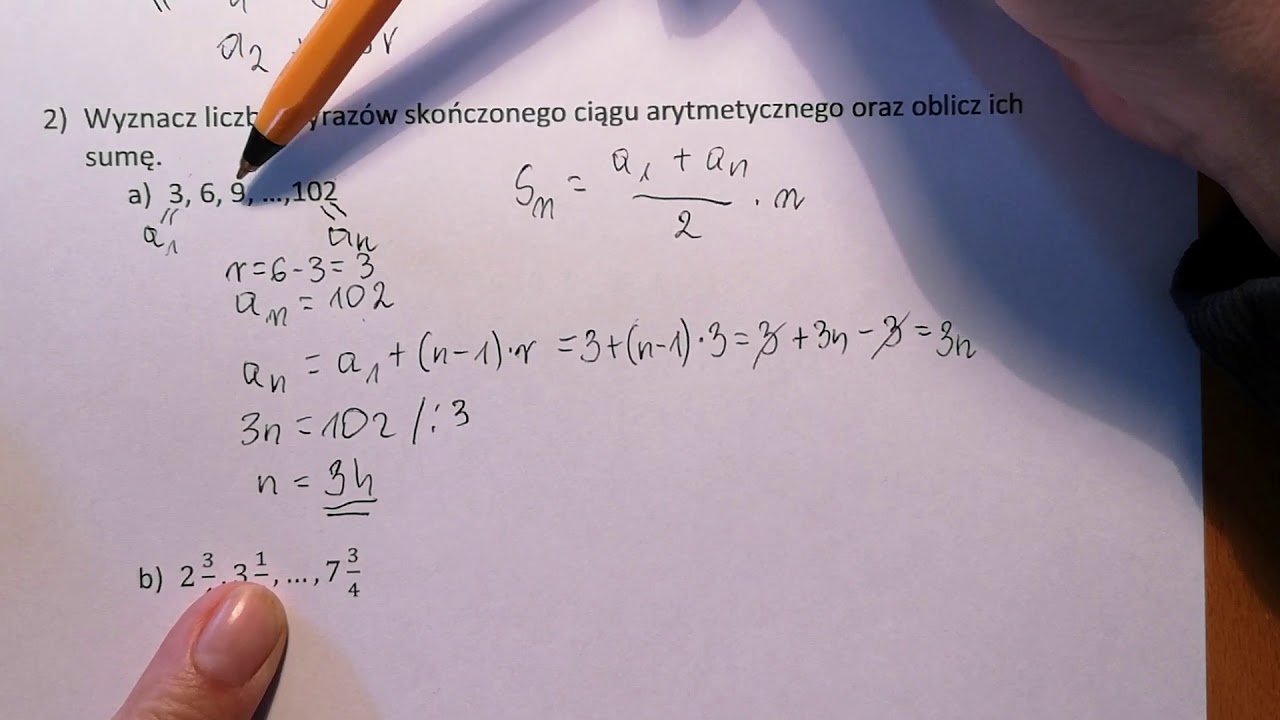 a₂ r
2) Wyznacz liczb yrazów skończonego ciągu arytmetycznego oraz oblicz ich
sumę.
a) 3, 6, 9, ...,102
a₁ aₙ
Sₙ = (a₁ + aₙ)/2 · n
r = 6 - 3 = 3
aₙ = 102
aₙ = a₁ + (n-1)·r = 3+(n-1)·3 = 3 + 3n - 3 = 3n
3n = 102 /:3
n = 34
b) 2 3/ , 3 1/ , ... , 7 3/4